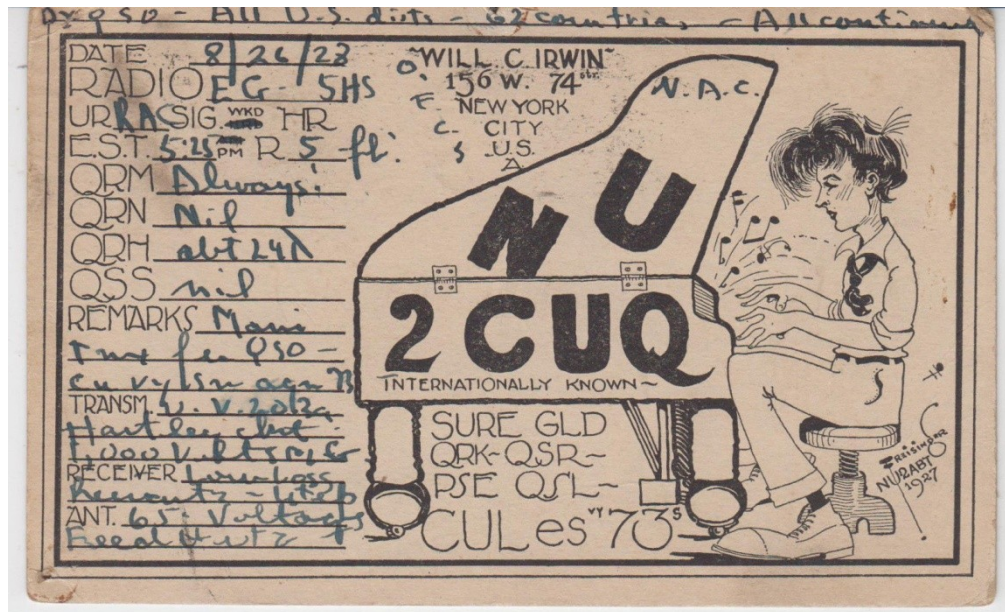 QSO - All U.S. dists - 62 countries - All continents
DATE 8/26/28
RADIO EG - 5HS
UR RAC SIG WKD HR
E.S.T. 5:25 PM R 5 fb.
QRM Always!
QRN Nil
QRH abt 24
QSS nil
REMARKS Mani
Tnx fer QSO -
cu vy sn agn 73
TRANSM. U.V. 203a
Hartley ckt -
1,000 Volts
RECEIVER Low Loss
ANT. 65' Voltage
Feed Hertz
~WILL C. IRWIN~
156 W. 74 str.
NEW YORK
CITY
U.S.
A
N.A.C.
NU
2CUQ
INTERNATIONALLY KNOWN~
SURE GLD
QRK-QSR-
PSE QSL-
CUL es vy 73s
PRAISINDER
NU2ABT
1927